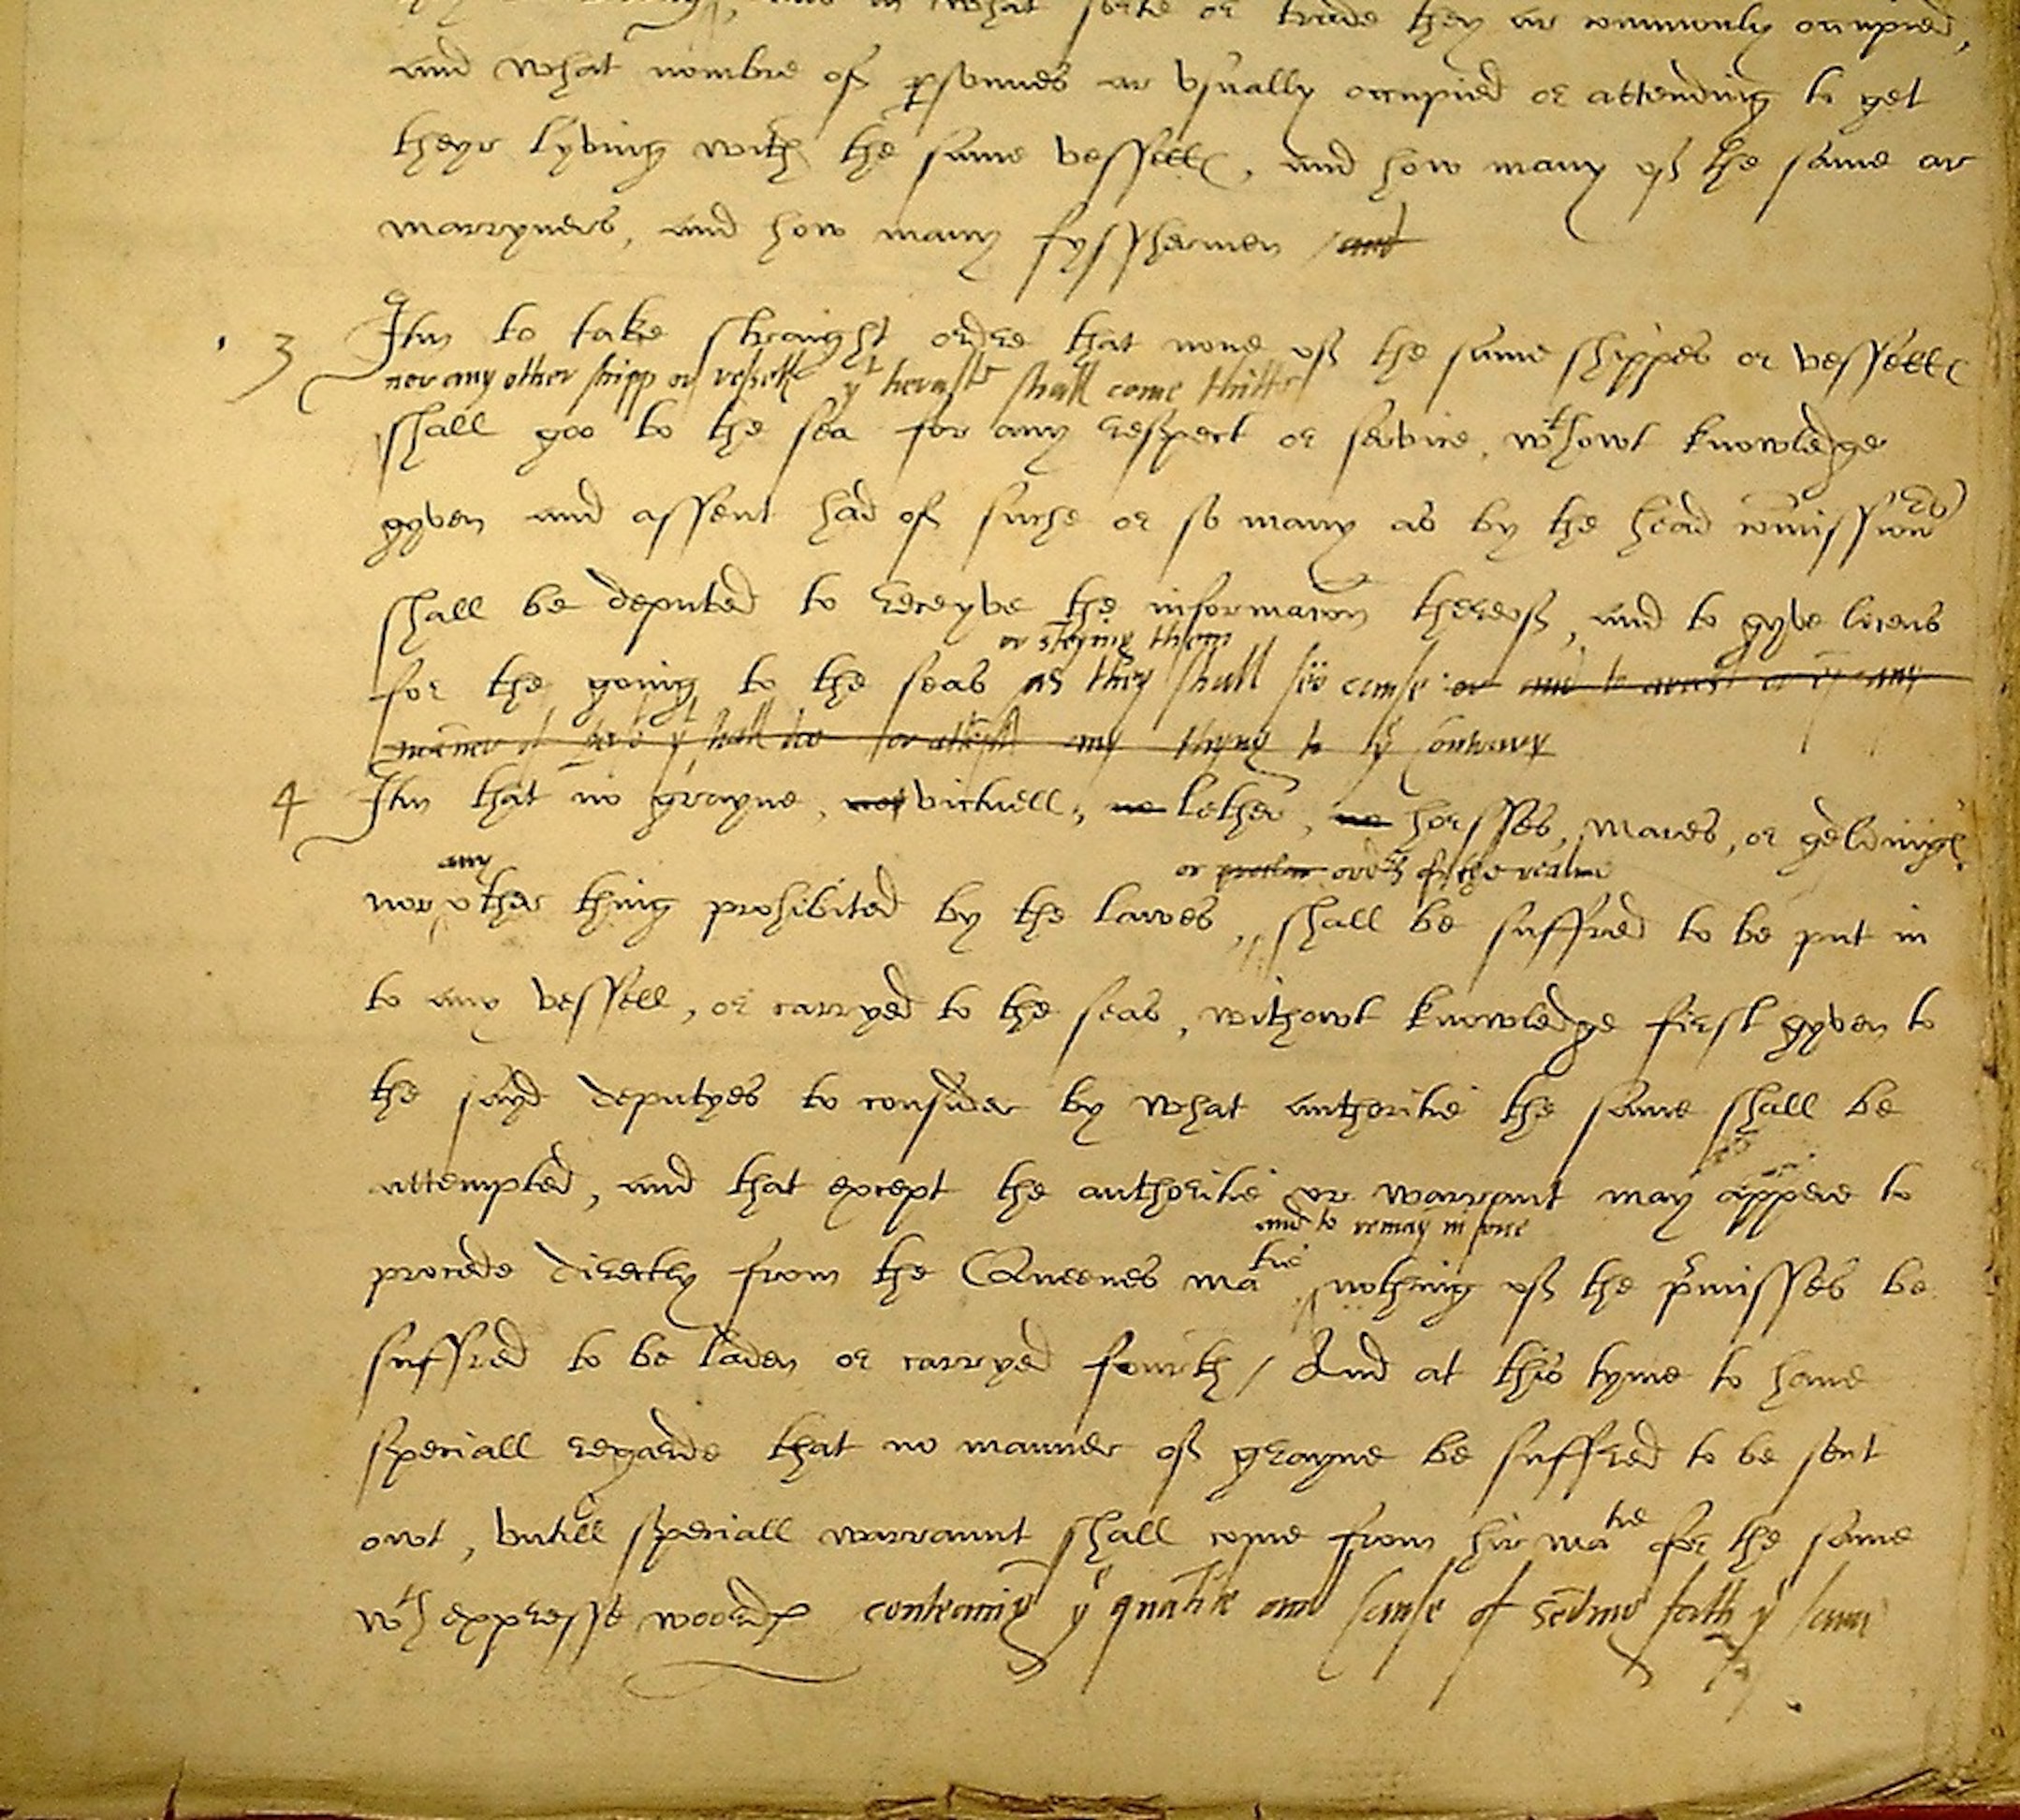 what sorte or trade they ar commonly occupied,
and what nombre of psonnes ar vsually occupied or attending to get
theyr lyving with the same vessells, and how many of the same ar
marryners, and how many fysshermen / and
3 Itm to take straight ordre that none of the same shippes or vessells
nor any other shipp or vessell yt heraftr shall come thither
shall goo to the sea for any respect or service, wthowt knowledge
gyven and assent had of suche or so many as by the head comissioners
shall be deputed to receyve the informacon thereof, and to gyve licens
or steying them
for the going to the seas as they shall see cause or and to any
maner of yt shall any thyng to ye contrary
4 Itm that no grayne, nor victuell, ne lether, ne horsses, mares, or geldings,
any or ordrs of the realme
nor other thing prohibited by the lawes, shall be suffred to be put in
to any vessell, or carryed to the seas, withowt knowledge first gyven to
the sayd deputyes to consider by what authoritie the same shall be
attempted, and that except the authoritie or warrant may appere to
and to remayn in force
procede directly from the Queenes matie nothing of the pmisses be
suffred to be laden or carryed fourth / And at this tyme to have
speciall regarde that no manner of grayne be suffred to be sent
owt, vntill speciall warraunt shall come from hir matie for the same
wth expresse woords conteaning ye quatite and cause of sending forth ye same